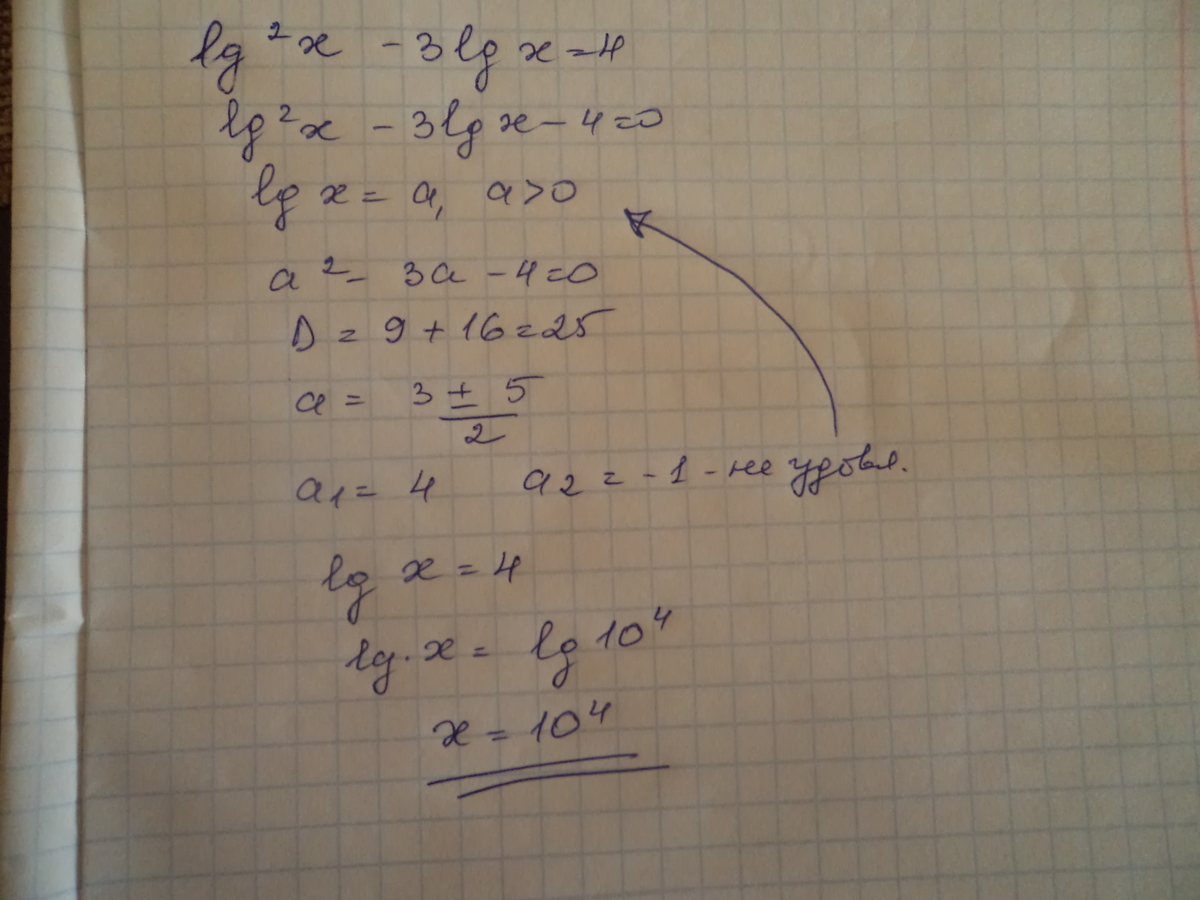 lg²x - 3lg x = 4
lg²x - 3lg x - 4 = 0
lg x = a, a > 0
a² - 3a - 4 = 0
D = 9 + 16 = 25
a = (3 ± 5)/2
a₁ = 4 a₂ = -1 - не удовл.
lg x = 4
lg x = lg 10⁴
x = 10⁴